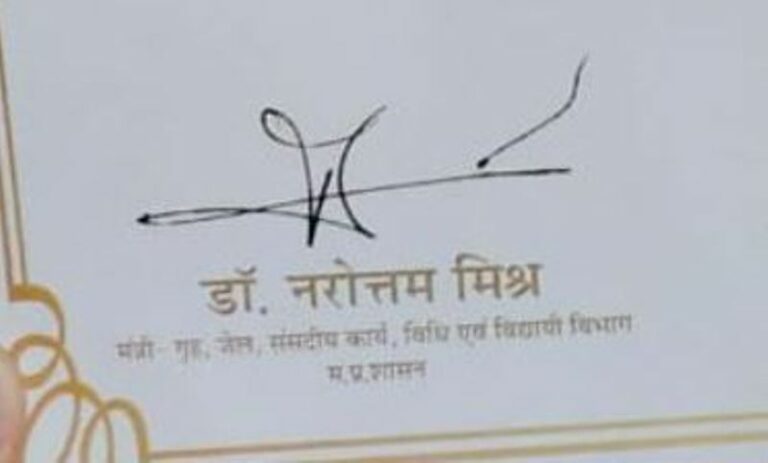 डॉ. नरोत्तम मिश्र
मंत्री- गृह, जेल, संसदीय कार्य, विधि एवं विधायी विभाग
म.प्र.शासन